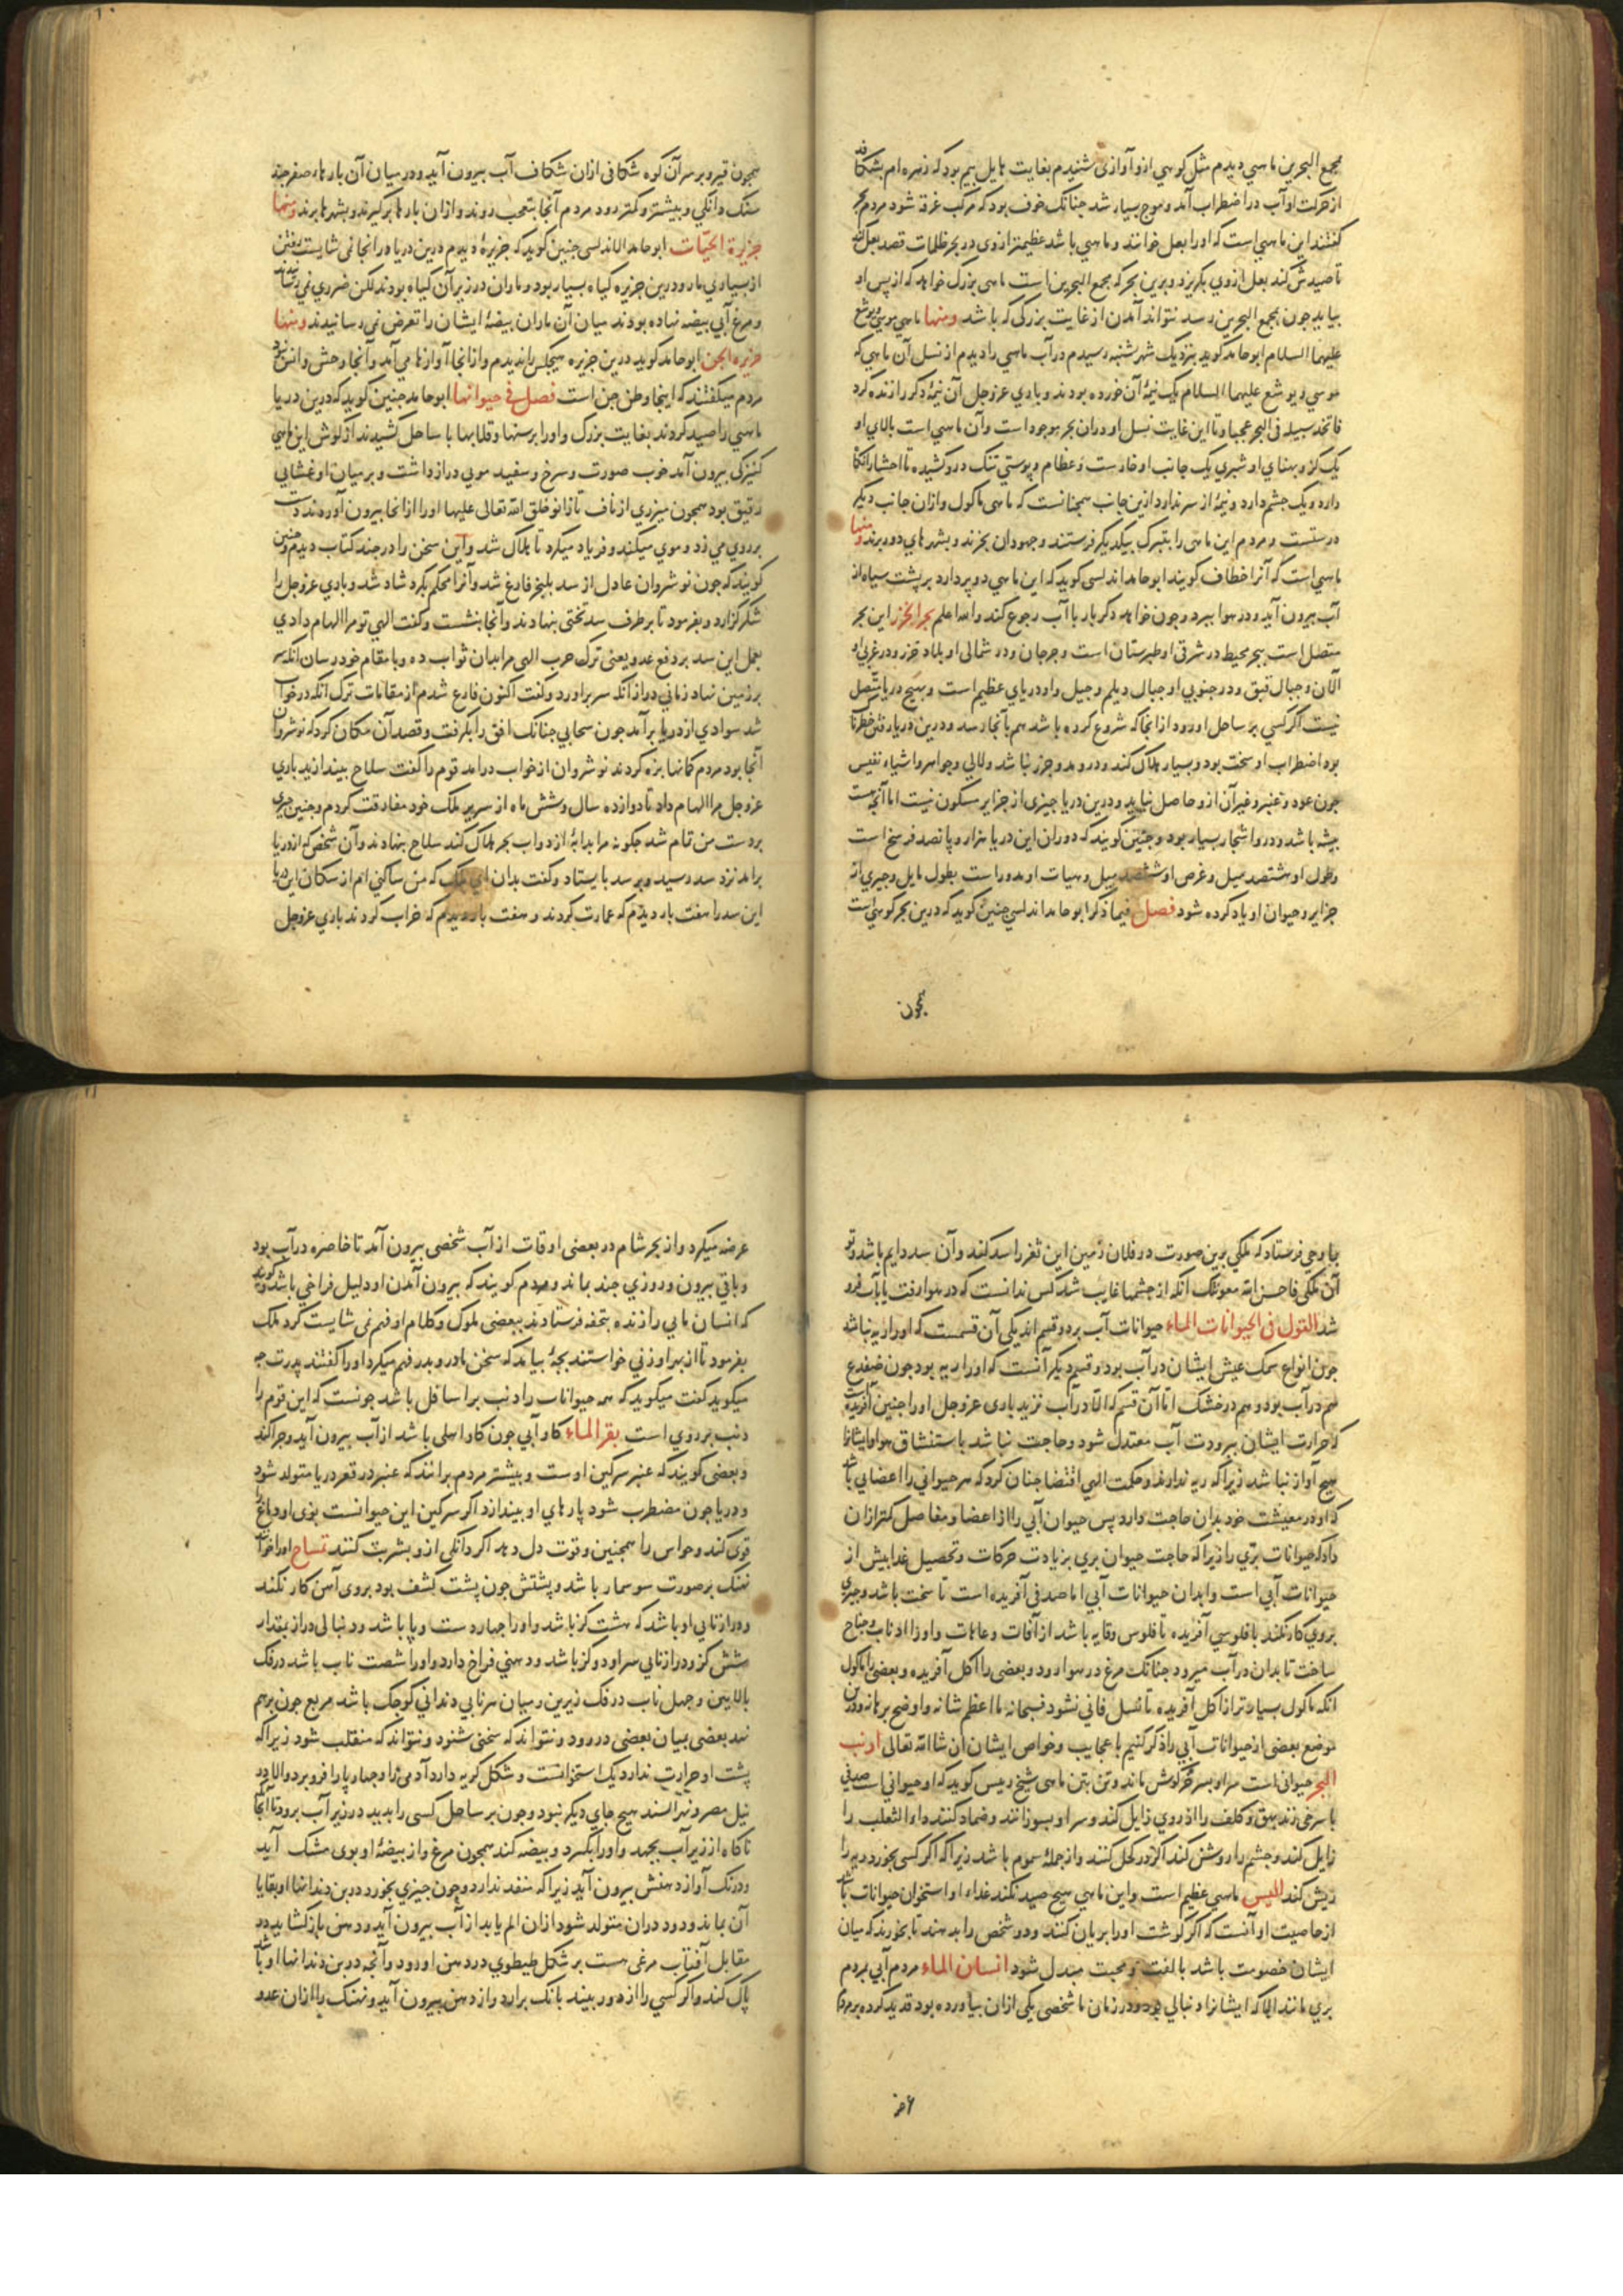 مجمع البحرین ماهی دیدم مثل کوهی ازو آوازی شنیدم بغایت هایل بیم بود که زهره ام بشکافد
از حرکت او آب در اضطراب آمد و موج بسیار شد جنانک خوف بود که مرکب غرقه شود مردم بحر
کفتند این ماهی است که اورا بغل خوانند و ماهی باشد عظیمتر ازوی در بحر ظلمات قصد بغل کند
تا صیدش کند بغل ازوی بکریزد و برین بحر که مجمع البحرین است ماهی بزرک خواهد که از پس او
بیاید جون بمجمع البحرین رسد نتواند آمدن از غایت بزرکی که باشد ومنها ماهی موسی ویوشع
علیهما السلام ابو حامد کوید بنزدیک شهر سبته رسیدم در آب ماهی را دیدم از نسل آن ماهی که
موسی و یوشع علیهما السلام یک نیمهٔ آن خورده بودند و باری عزوجل آن نیمهٔ دکر را زنده کرد
فاتخذ سبیله فی البحر عجبا و تا این غایت نسل او در آن بحر موجود است و آن ماهی است بالای او
یک کز و بهنای او شبری یک جانب او خارست و عظام و پوستی تنک در و کشیده تا احشا
دارد و یک جشم دارد و نیمهٔ از سر ندارد ازین جانب همجنانست که ماهی ماکول و ازان جانب دیکر
درستست و مردم این ماهی را بتبرک بیکدیکر فرستند و جهودان بخرند و بشهرهای دور برند ومنها
ماهی است که آنرا خطاف کویند ابو حامد اندلسی کوید که این ماهی دو پر دارد بر پشت سیاه از
آب بیرون آید و در هوا ببرد و جون خواهد دکر بار با آب رجوع کند والله اعلم بحر الخزر این بحر
متصل است ببحر محیط در شرقی او طبرستان است و جرجان و در شمالی او بلاد خزر و در غربی او
الان و جبال قبق و در جنوبی او جبال دیلم و جیل و او دریای عظیم است و بهیج دریا متصل
نیست اکر کسی بر ساحل او رود از انجا که شروع کرده باشد هم بآنجا رسد و درین دریا رفتن خطرناک
بود اضطراب او سخت بود و بسیار هلاک کند و درو مد و جزر نباشد و لالی و جواهر و اشیاء نفیس
جون عود و عنبر و غیر آن ازو حاصل نیاید و درین دریا جیزی از جزایر مسکون نیست اما آنجه هست
بیشه باشد و درو اشجار بسیار بود و جنین کویند که دوران این دریا هزار و پانصد فرسخ است
و طول او هشتصد میل و عرض او ششصد میل و هیات او مدور است بطول مایل و جیزی از
جزایر و حیوان او یاد کرده شود فصل فیما ذکر ابو حامد اندلسی جنین کوید که درین بحر کوهی است
همجون
همجون قیر و بر سر آن کوه شکافی ازان شکاف آب بیرون آید و در میان آن بارهاء صفر جند
سنک دانکی و بیشتر و کمتر رود مردم آنجا بتعجب روند و ازان بارها برکیرند و بشهرها برند ومنها
جزیرة الحیّات ابو حامد الاندلسی جنین کوید که جزیرهٔ دیدم درین دریا و در انجا نمی شایست رفتن
از بسیاری مار و درین جزیره کیاه بسیار بود و ماران در زیر آن کیاه بودند لکن ضرری نمی رسانیدند
و مرغ آبی بیضه نهاده بودند میان آن ماران بیضهٔ ایشان را تعرض نمی رسانیدند ومنها
جزیره الجن ابو حامد کوید درین جزیره هیجکس را ندیدم و از انجا آوازها می آمد و آنجا وحش و انس نبود
مردم میکفتند که اینجا وطن جن است فصل فی حیوانها ابو حامد جنین کوید که درین دریا
ماهی را صید کردند بغایت بزرک و اورا برسنها و قلابها با ساحل کشیدند از کوش این ماهی
کنیزکی بیرون آمد خوب صورت و سرخ و سفید موی دراز داشت و بر میان او غشایی
رقیق بود همجون میزری از ناف تا زانو خلق الله تعالی علیها اورا از انجا بیرون آوردند دست
بر روی می زد و موی میکند و فریاد میکرد تا هلاک شد واین سخن را در جند کتاب دیدم و جنین
کویند که جون نوشروان عادل از سد بلنجر فارغ شد و آنرا محکم بکرد شاد شد و باری عزوجل را
شکر کزارد و بفرمود تا بر طرف سد تختی بنهادند و آنجا بنشست و کفت الهی تو مرا الهام دادی
بعمل این سد بر دفع عدو یعنی ترک حرب الهی مرا بدان ثواب ده و با مقام خود رسان انکه سر
بر زمین نهاد زمانی دراز آنکه سر براورد و کفت اکنون فارغ شدم از مقامات ترک انکه در خواب
شد سوادی از دریا برآمد جون سحابی جنانک افق را بکرفت و قصد آن مکان کرد که نوشروان
آنجا بود مردم کمانها بزه کردند نوشروان از خواب درامد قوم را کفت سلاح بیندازید باری
عزوجل مرا الهام داد تا دوازده سال و شش ماه از سریر ملک خود مفارقت کردم و جنین جیزی
بر دست من تمام شد جکونه مرا بدابهٔ از دواب بحر هلاک کند سلاح بنهادند و آن شخص که از دریا
برامد نزد سد رسید و بر سد بایستاد و کفت بدان ای ملک که من ساکنی ام از سکان این دریا
این سد را هفت بار دیدم که عمارت کردند و هفت بار دیدم که خراب کردند باری عزوجل
بما وحی فرستاد که ملکی برین صورت در فلان زمین این ثغر را سد کند و آن سد دایم باشد و تو
آن ملکی فاحسن الله معونتک آنکه از جشمها غایب شد کس ندانست که در هوا رفت یا بآب فرو
شد القول فی الحیوانات الماء حیوانات آب بر دو قسم اند یکی آن قسمست که اورا ریه نباشد
جون انواع سمک عیش ایشان در آب بود و قسم دیکر آنست که اورا ریه بود جون ضفدع
هم در آب بود و هم در خشک اما آن قسم که الّا در آب نزید باری عزوجل اورا جنین آفریده است
که حرارت ایشان ببرودت آب معتدل شود و حاجت نباشد باستنشاق هوا و ایشانرا
هیج آواز نباشد زیرا که ریه ندارند و حکمت الهی اقتضا جنان کرد که هر حیوانی را اعضایی باشد
که او در معیشت خود بدان حاجت دارد پس حیوان آبی را از اعضا و مفاصل کمتر ازان
داد که حیوانات برّی را زیرا که حاجت حیوان بری بزیادت حرکات و تحصیل غدا بیش از
حیوانات آبی است و ابدان حیوانات آبی اما صدفی آفریده است تا سخت باشد و جیزی
بروی کار نکند یا فلوسی آفریده تا فلوس وقایه باشد از آفات و عاهات و اورا اذناب و جناح
ساخت تا بدان در آب میرود جنانک مرغ در هوا رود و بعضی را آکل آفریده و بعضی را ماکول
انکه ماکول بسیارتر از آکل آفریده تا نسل فانی نشود فسبحانه ما اعظم شانه و اوضح برهانه و درین
موضع بعضی از حیوانات آبی را ذکر کنیم با عجایب و خواص ایشان ان شا الله تعالی ارنب
البحر حیوانی است سر او بسر خرکوش ماند و تن بتن ماهی شیخ رییس کوید که او حیوانی است صدفی
با سرخی زند بهق و کلف را از روی زایل کند و سر او بسوزانند و ضماد کنند داء الثعلب را
زایل کند و جشم را روشن کند اکر در کحل کنند و از جملهٔ سموم باشد زیرا که اکر کسی بخورد ریه را
ریش کند الیس ماهی عظیم است و این ماهی هیج صید نکند غداء او استخوان حیوانات باشد
از خاصیت او آنست که اکر کوشت اورا بریان کنند و دو شخص را بدهند تا بخورند که میان
ایشان خصومت باشد بالفت و محبت مبدل شود انسان الماء مردم آبی بمردم
بری مانند الا که ایشانرا دنبالی بود و در زمان ما شخصی یکی ازان بیاورده بود قدید کرده بر مردم
عرضه
عرضه میکرد و از بحر شام در بعضی اوقات از آب شخصی بیرون آمد تا خاصره در آب بود
و باقی بیرون و روزی جند بماند و مردم کویند که بیرون آمدن او دلیل فراخی باشد و کویند
که انسان مایی را زنده بتحفه فرستادند ببعضی ملوک و کلام او فهم نمی شایست کرد ملک
بفرمود تا از بهر او زنی خواستند بجهٔ بیامد که سخن مادر و پدر فهم میکرد اورا کفتند پدرت جه
میکوید کفت میکوید که همه حیوانات را دنب بر اسافل باشد جونست که این قوم را
دنب بر روی است بقر الماء کاو آبی جون کاو اهلی باشد از آب بیرون آید و جرا کند
و بعضی کویند که عنبر سرکین اوست و بیشتر مردم برانند که عنبر در قعر دریا متولد شود
و دریا جون مضطرب شود پارهای او بیندازد اکر سرکین این حیوانست بوی او دماغ را
قوی کند و حواس را همجنین و قوت دل دهد اکر دانکی ازو بشربت کنند تمساح اورا خوانند
نهنک بر صورت سوسمار باشد و پشتش جون پشت کشف بود بروی آهن کار نکند
و درازنایی او باشد که هشت کز باشد و اورا جهار دست و پا باشد و دنبالی دراز بمقدار
شش کز و درازنایی سر او دو کز باشد و دهنی فراخ دارد و اورا شصت ناب باشد در فک
بالایین و جهل ناب در فک زیرین و میان هر نابی دندانی کوجک باشد مربع جون برهم
نهد بعضی میان بعضی در رود و نتواند که سخنی شنود و نتواند که منقلب شود زیرا که
پشت او حرارت ندارد یک استخوانست و شکل کریه دارد آدمی را و جهارپا را فرو برد و الا در
نیل مصر و نهر السند هیج جای دیکر نبود و جون بر ساحل کسی را بدید در زیر آب برود تا آنجا
ناکاه از زیر آب بجهد و اورا بکیرد و بیضه کند همجون مرغ و از بیضهٔ او بوی مشک آید
و درنک آواز دهنش بیرون آید زیرا که منفذ ندارد و جون جیزی بخورد در بن دندانها او بقایا
آن بماند و دود دران متولد شود ازان الم یابد از آب بیرون آید و دهن باز کشاید در
مقابل آفتاب مرغی هست بر شکل طیطوی در دهن او رود و آنجه در بن دندانها او باشد
پاک کند و اکر کسی را از دور بیند بانک برارد و از دهن بیرون آید و نهنک را ازان عدو